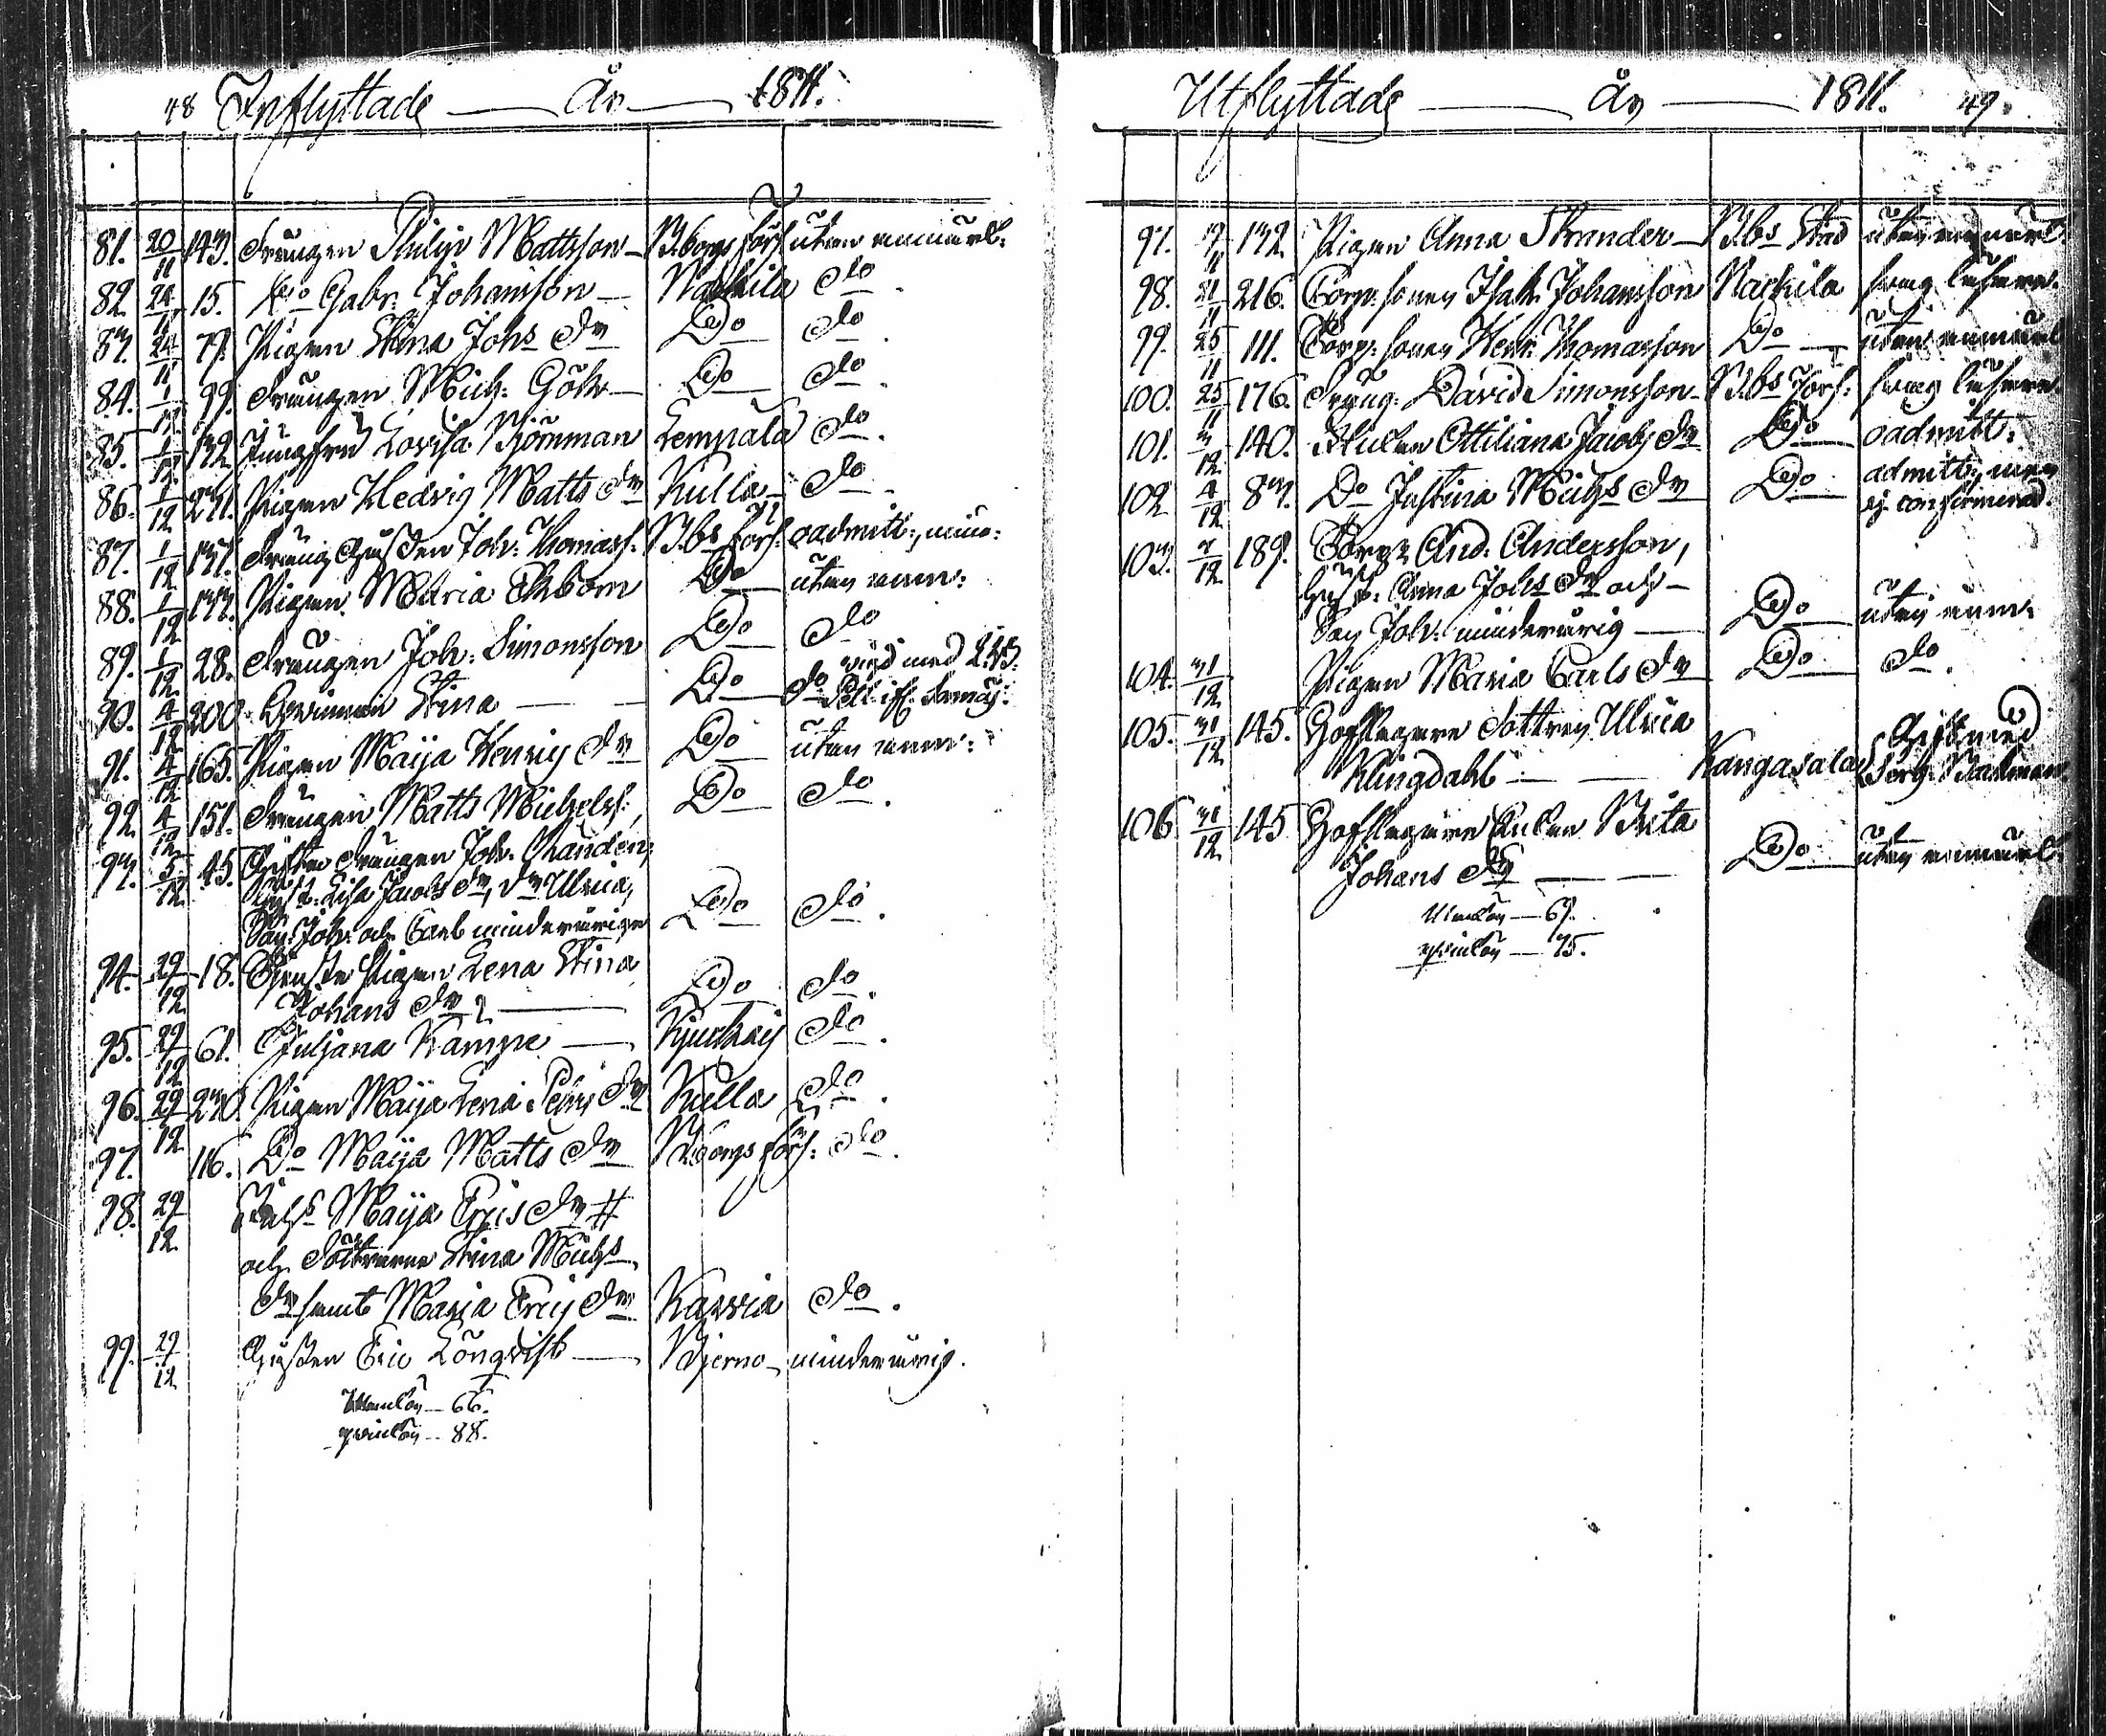 48 Inflyttade — År — 1811.
81. 20/11 143. Drängen Philip Mattsson — B:borgs förs: utan anmärk:
82. 24/11 15. Do Gabr: Johansson — Nackila do.
83. 24/11 79. Pigan Stina Johs dr Do do.
84. 1/12 99. Drängen Mich: Gök — Do do.
85. 1/12 132 Jungfru Lovisa Björnman Lempälä do.
86. 1/12 231. Pigan Hedvig Matts dr Kulla — do.
87. 1/12 137. Dräng Gossen Joh: Thomass: B:bs förs: oadmitt:, mino:
88. 1/12 133. Pigan Maria Ekbom Do utan anm:
89. 1/12 28. Drängen Joh: Simonsson Do do
90. 4/12 200. Qwinnan Stina — Do do
91. 4/12 165. Pigan Maija Henrics dr Do utan anm:
92. 4/12 151. Drängen Matts Michelss: Do do.
93. 5/12 45. Gifte Drängen Joh: Randen,
Hust: Lisa Jacobs dr, dr Ulrica,
Sön: Joh: och Carl minderårige Do do.
94. 29/12 18. Pigan Lena Stina
Johans dr — Do do.
95. 29/12 61. Juliana Kampe — do.
96. 29/12 230. Pigan Maija Lena Pehrs dr Kulla do.
97. 116. Do Maija Matts dr B:borgs förs: do.
98. 29/12 Maija Erics dr #
och Döttrarne Stina Michs
dr samt Maria Erics dr Karvia do.
99. 29/12 Gossen Eric Lönqvist — Bjerno — minderårig.
Mankön — 66.
qvinkön — 88.
Utflyttade — År — 1811. 49.
97. 19/11 132. Pigan Anna Strander — B:bs Stad utan anmärk:
98. 21/11 216. Torp: sonen Isak Johansson Nackila swag läsare.
99. 25/11 111. Torp: sonen Henr: Thomasson Do — utan anmärk
100. 25/11 176. Dräng: David Simonsson — B:bs Förs: swag läsare.
101. 3/12 140. Flickan Ottiliana Jacobs dr Do oadmitt:
102 4/12 83. Do Justina Michs dr Do admitt:, men
ej confirmerad.
103. 7/12 189. Torp: And: Andersson,
Hust: Anna Johs dr och —
Son Joh: minderårig — Do utan anm:
104. 31/12 Pigan Maria Carls dr Do do.
105. 31/12 145. Dottren Ulrica
Klingdahl — Kangasala Gift med
Serg: Backman
106 31/12 145 Enkan Brita
Johans dr — Do utan anmärk:
Mankön — 69.
qvinkön — 75.